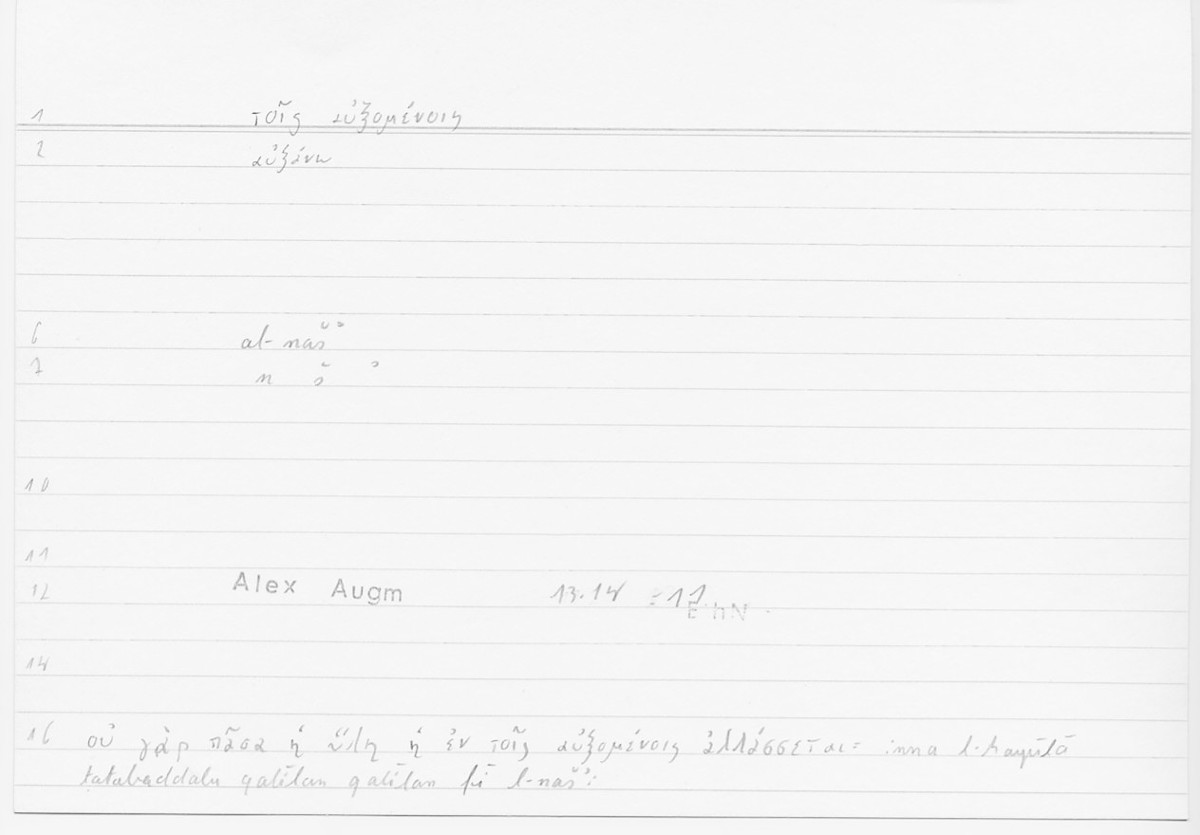 1 τοῖς αὐξομένοις
2 αὐξάνω
6 al-našʾ
7 n š ʾ
10
11
12 Alex Augm 13.14 :11
14
16 οὐ γὰρ πᾶσα ἡ ὕλη ἡ ἐν τοῖς αὐξομένοις ἀλλάσσεται: inna l-hayūlā
tatabaddalu qalīlan qalīlan fī l-našʾ: